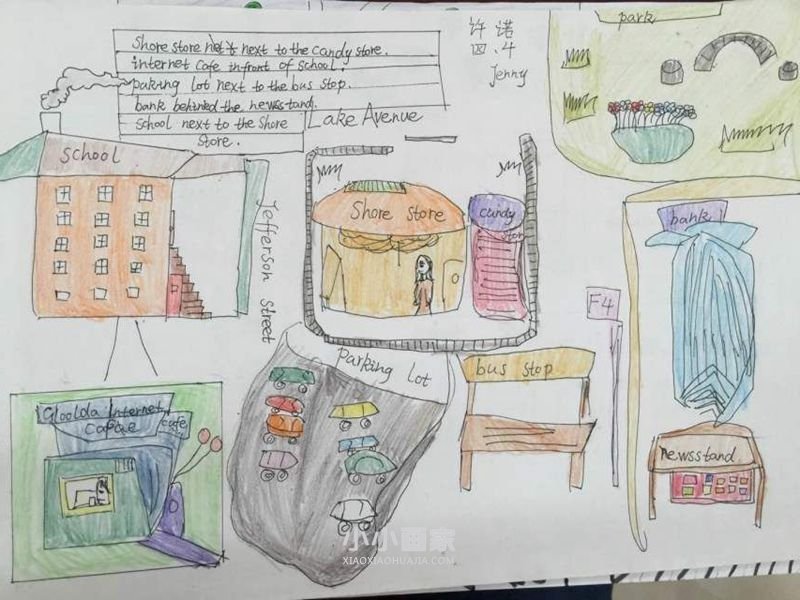 Shore store next to the candy store.
internet Cafe in front of school.
paking lot next to the bus stop.
bank behined the newsstand.
school next to the Shore
store.
许诺
四.4
Jenny
park
Lake Avenue
school
Jefferson street
Shore store
candy
stor
bank
F4
parking lot
bus stop
Gloolda Internet
Capae
cafe
newsstand
小小画家
XIAOXIAOHUAJIA.COM